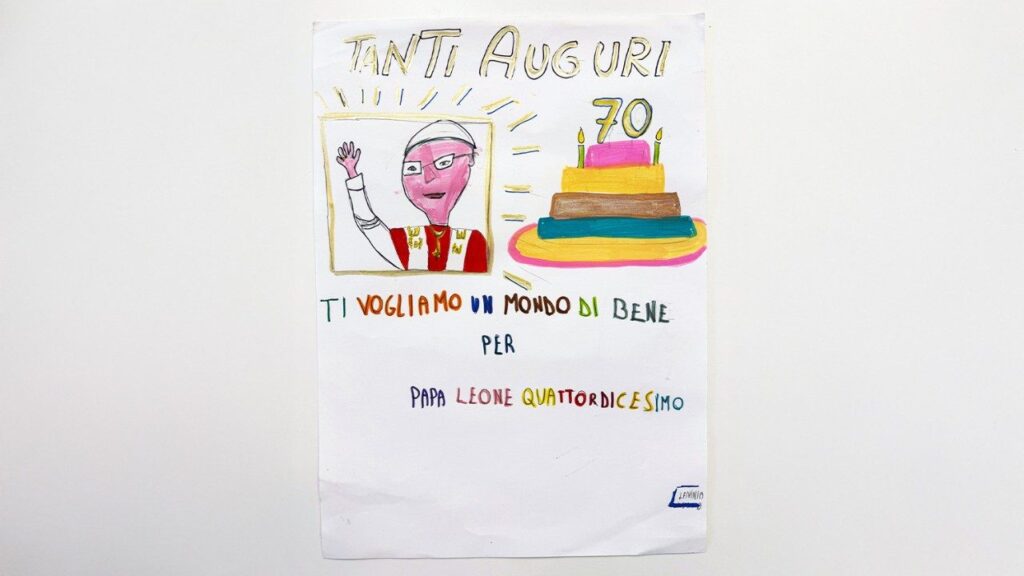 TANTI AUGURI
70
TI VOGLIAMO UN MONDO DI BENE
PER
PAPA LEONE QUATTORDICESIMO